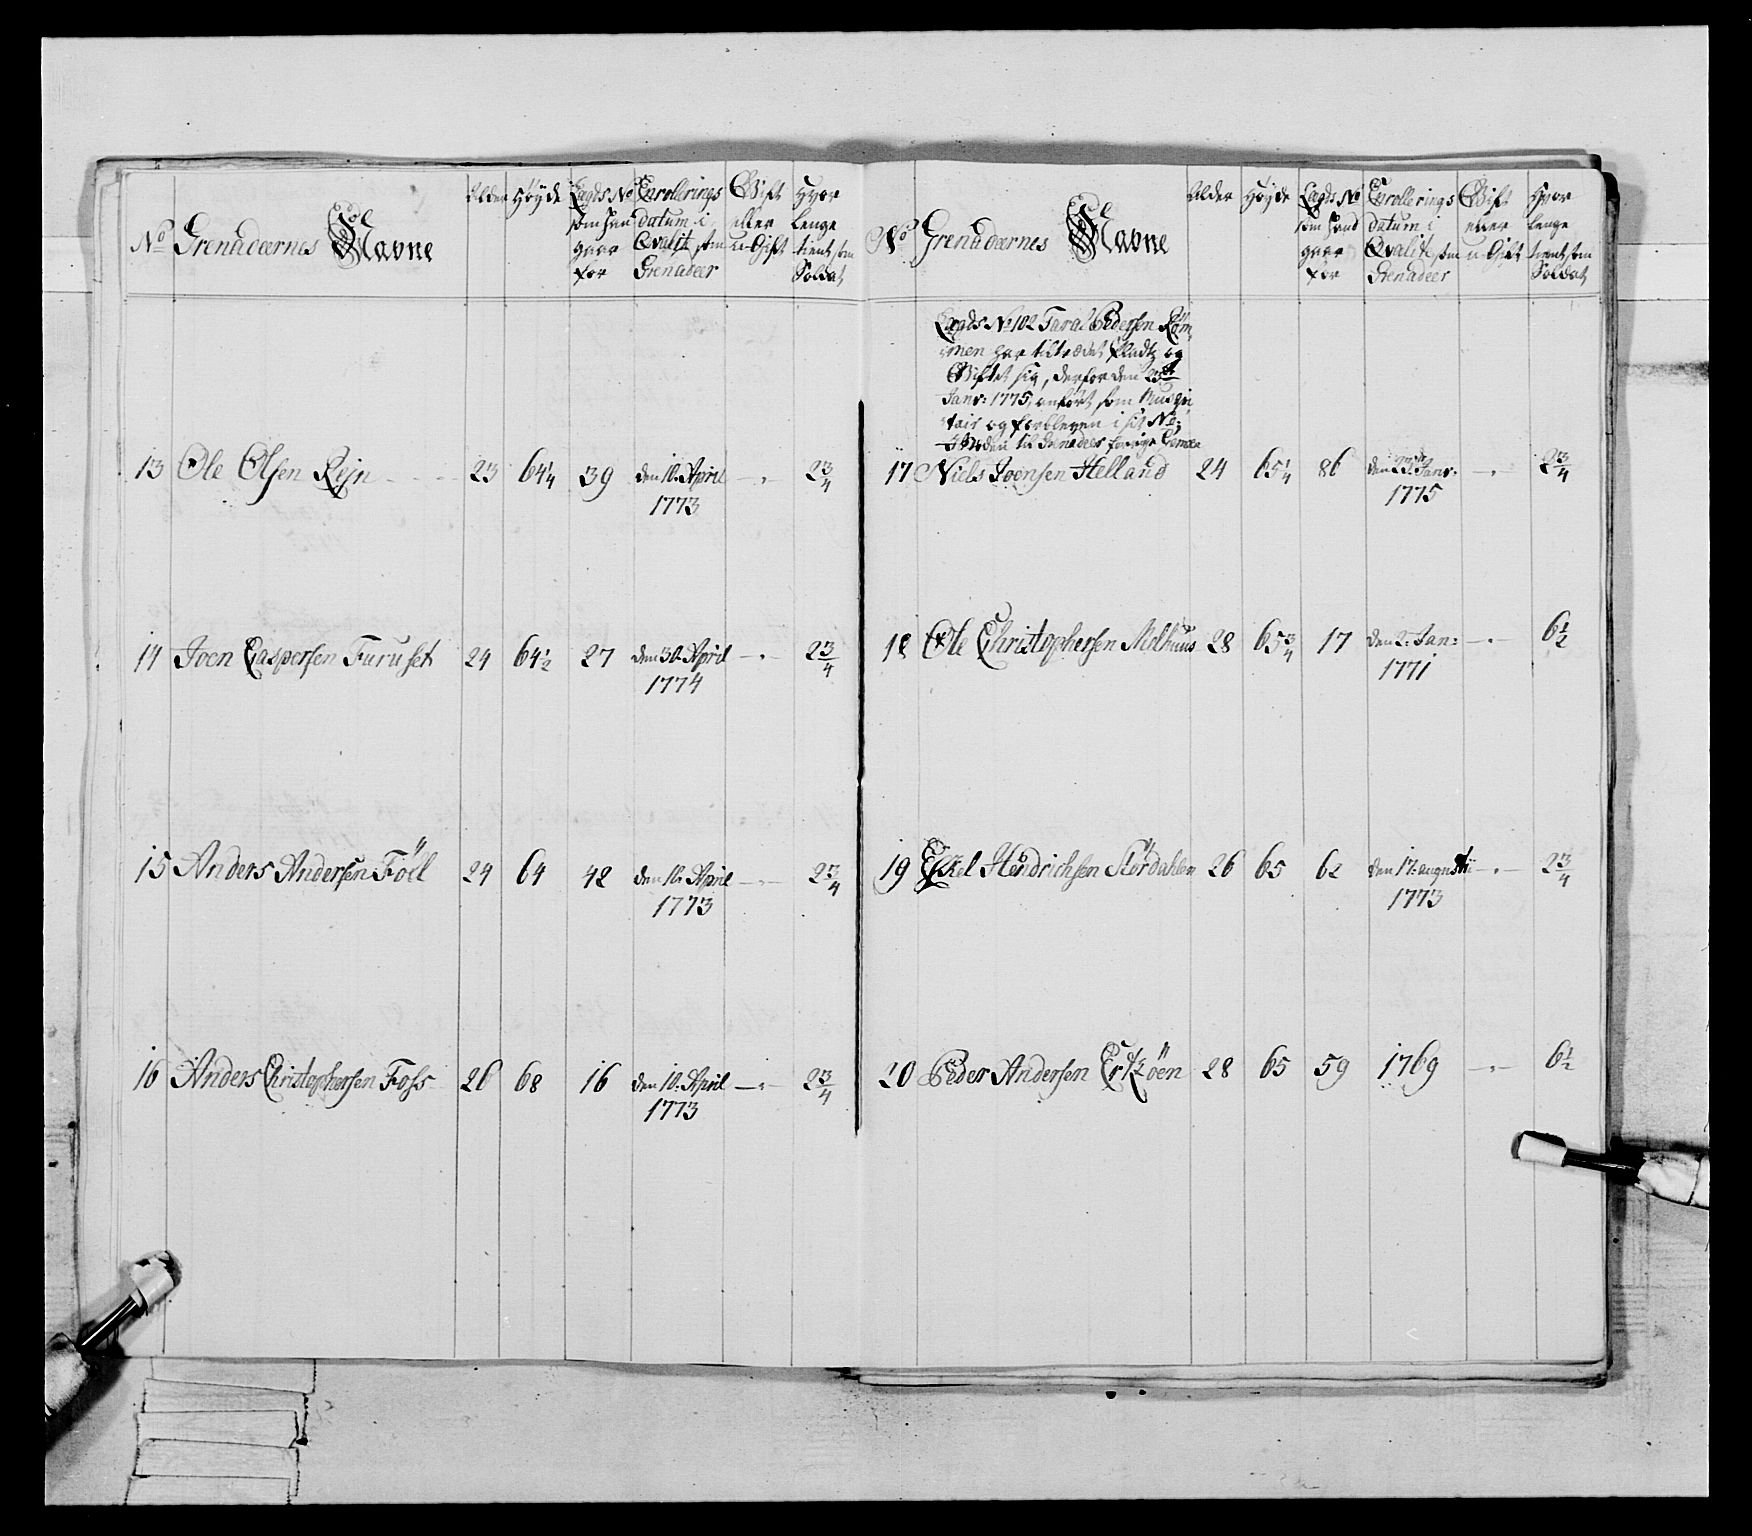 No Grenadeernes Navne Alder Höyde Lægds No som han gaar for Enrollerings datum i Qvalit som Grenadeer Gift eller u-Gift Hvor lenge tient som Soldat
13 Ole Olsen Rejn 23 64¼ 39 den 10. April 1773 — 2¾
14 Joen Caspersen Furuset 24 64½ 27 den 30. April 1774 — 2¾
15 Anders Andersen Föll 24 64 42 den 10. April 1773 — 2¾
16 Anders Christophersen Foss 26 68 16 den 10. April 1773 — 2¾
No Grenadeernes Navne Alder Höyde Lægds No som hand gaar for Enrollerings datum i Qvalit som Grenadeer Gift eller u-Gift Hvor lenge tient som Soldat
Lægds No 102 Taral Pedersen Röm
men har tiltrædet Pladtz og
Giftet sig, derfor den 23de
Janv: 1775, anfört som Musqvi
tair og forbleven i sit No;
til Grenadeer forrige
17 Niels Joensen Helland 24 65¼ 86 den 23de Janv: 1775 — 2¾
18 Ole Christophersen Melhuus 28 65¾ 17 den 2. Jan: 1771 — 6½
19 Eskel Hendrichsen Stördahlen 26 65 62 den 17. augusti 1773 — 2¾
20 Peder Andersen 28 65 59 1769 — 6½